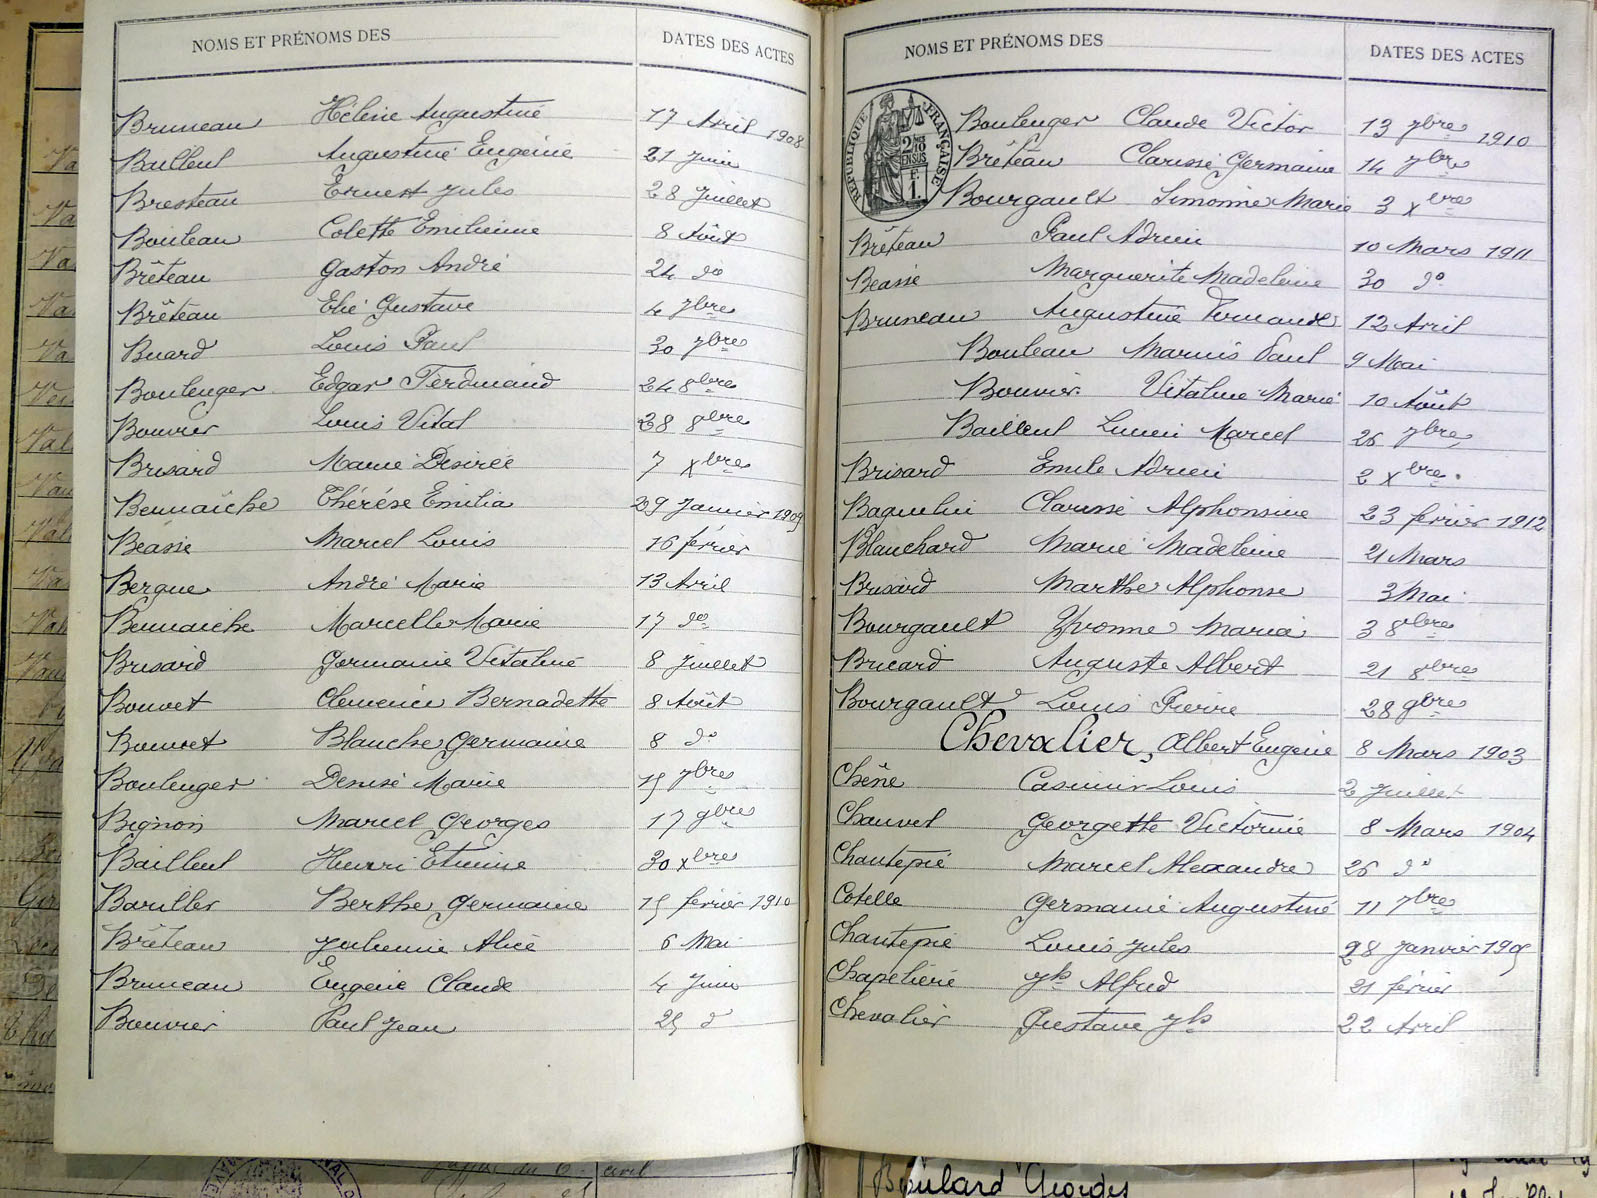 NOMS ET PRÉNOMS DES DATES DES ACTES
Bruneau Hélène Augustine 17 Avril 1908
Bailleul Augustine Eugénie 21 Juin
Bresteau Ernest Jules 28 Juillet
Bouleau Colette Emilienne 8 Août
Brêteau Gaston André 24 do
Brêteau Elie Gustave 4 7bre
Buard Louis Paul 30 7bre
Boulenger Edgar Ferdinand 24 8bre
Bouvier Louis Vital 28 8bre
Brisard Marie Désirée 7 Xbre
Bennaiche Thérèse Emilia 29 Janvier 1909
Béasse Marcel Louis 16 février
Bergue André Marie 13 Avril
Bennaiche Marcelle Marie 17 do
Brisard Germaine Vitaline 8 Juillet
Bouvet Clémence Bernadette 8 Août
Bouvet Blanche Germaine 8 do
Boulenger Denise Marie 15 7bre
Bignon Marcel Georges 17 9bre
Bailleul Henri Etienne 30 Xbre
Bariller Berthe Germaine 15 février 1910
Brêteau Julienne Alice 6 Mai
Bruneau Eugène Claude 4 Juin
Bouvier Paul Jean 25 d
NOMS ET PRÉNOMS DES DATES DES ACTES
RÉPUBLIQUE FRANÇAISE
Boulenger Claude Victor 13 7bre 1910
2/10 EN SUS
Brêteau Clarisse Germaine 14 7bre
F. 1.
Bourgault Simonne Marie 3 Xbre
Brêteau Paul Adrien 10 Mars 1911
Beasse Marguerite Madeleine 30 do
Bruneau Augustine Fernande 12 Avril
Bouleau Marius Paul 9 Mai
Bouvier Vitaline Marie 10 Août
Bailleul Lucien Marcel 26 7bre
Brisard Emile Adrien 2 Xbre
Baguelin Clarisse Alphonsine 23 février 1912
Blanchard Marie Madeleine 21 Mars
Brisard Marthe Alphonse 3 Mai
Bourgault Yvonne Maria 3 8bre
Bricard Auguste Albert 21 8bre
Bourgault Louis Pierre 28 9bre
Chevalier, Albert Eugène 8 Mars 1903
Chêne Casimir Louis 2 Juillet
Chauvel Georgette Victorine 8 Mars 1904
Chantepie Marcel Alexandre 26 do
Cotelle Germaine Augustine 11 7bre
Chantepie Louis Jules 28 Janvier 1905
Chapelière Jh Alfred 21 février
Chevalier Gustave Jh 22 Avril
civil
Boulard Georges